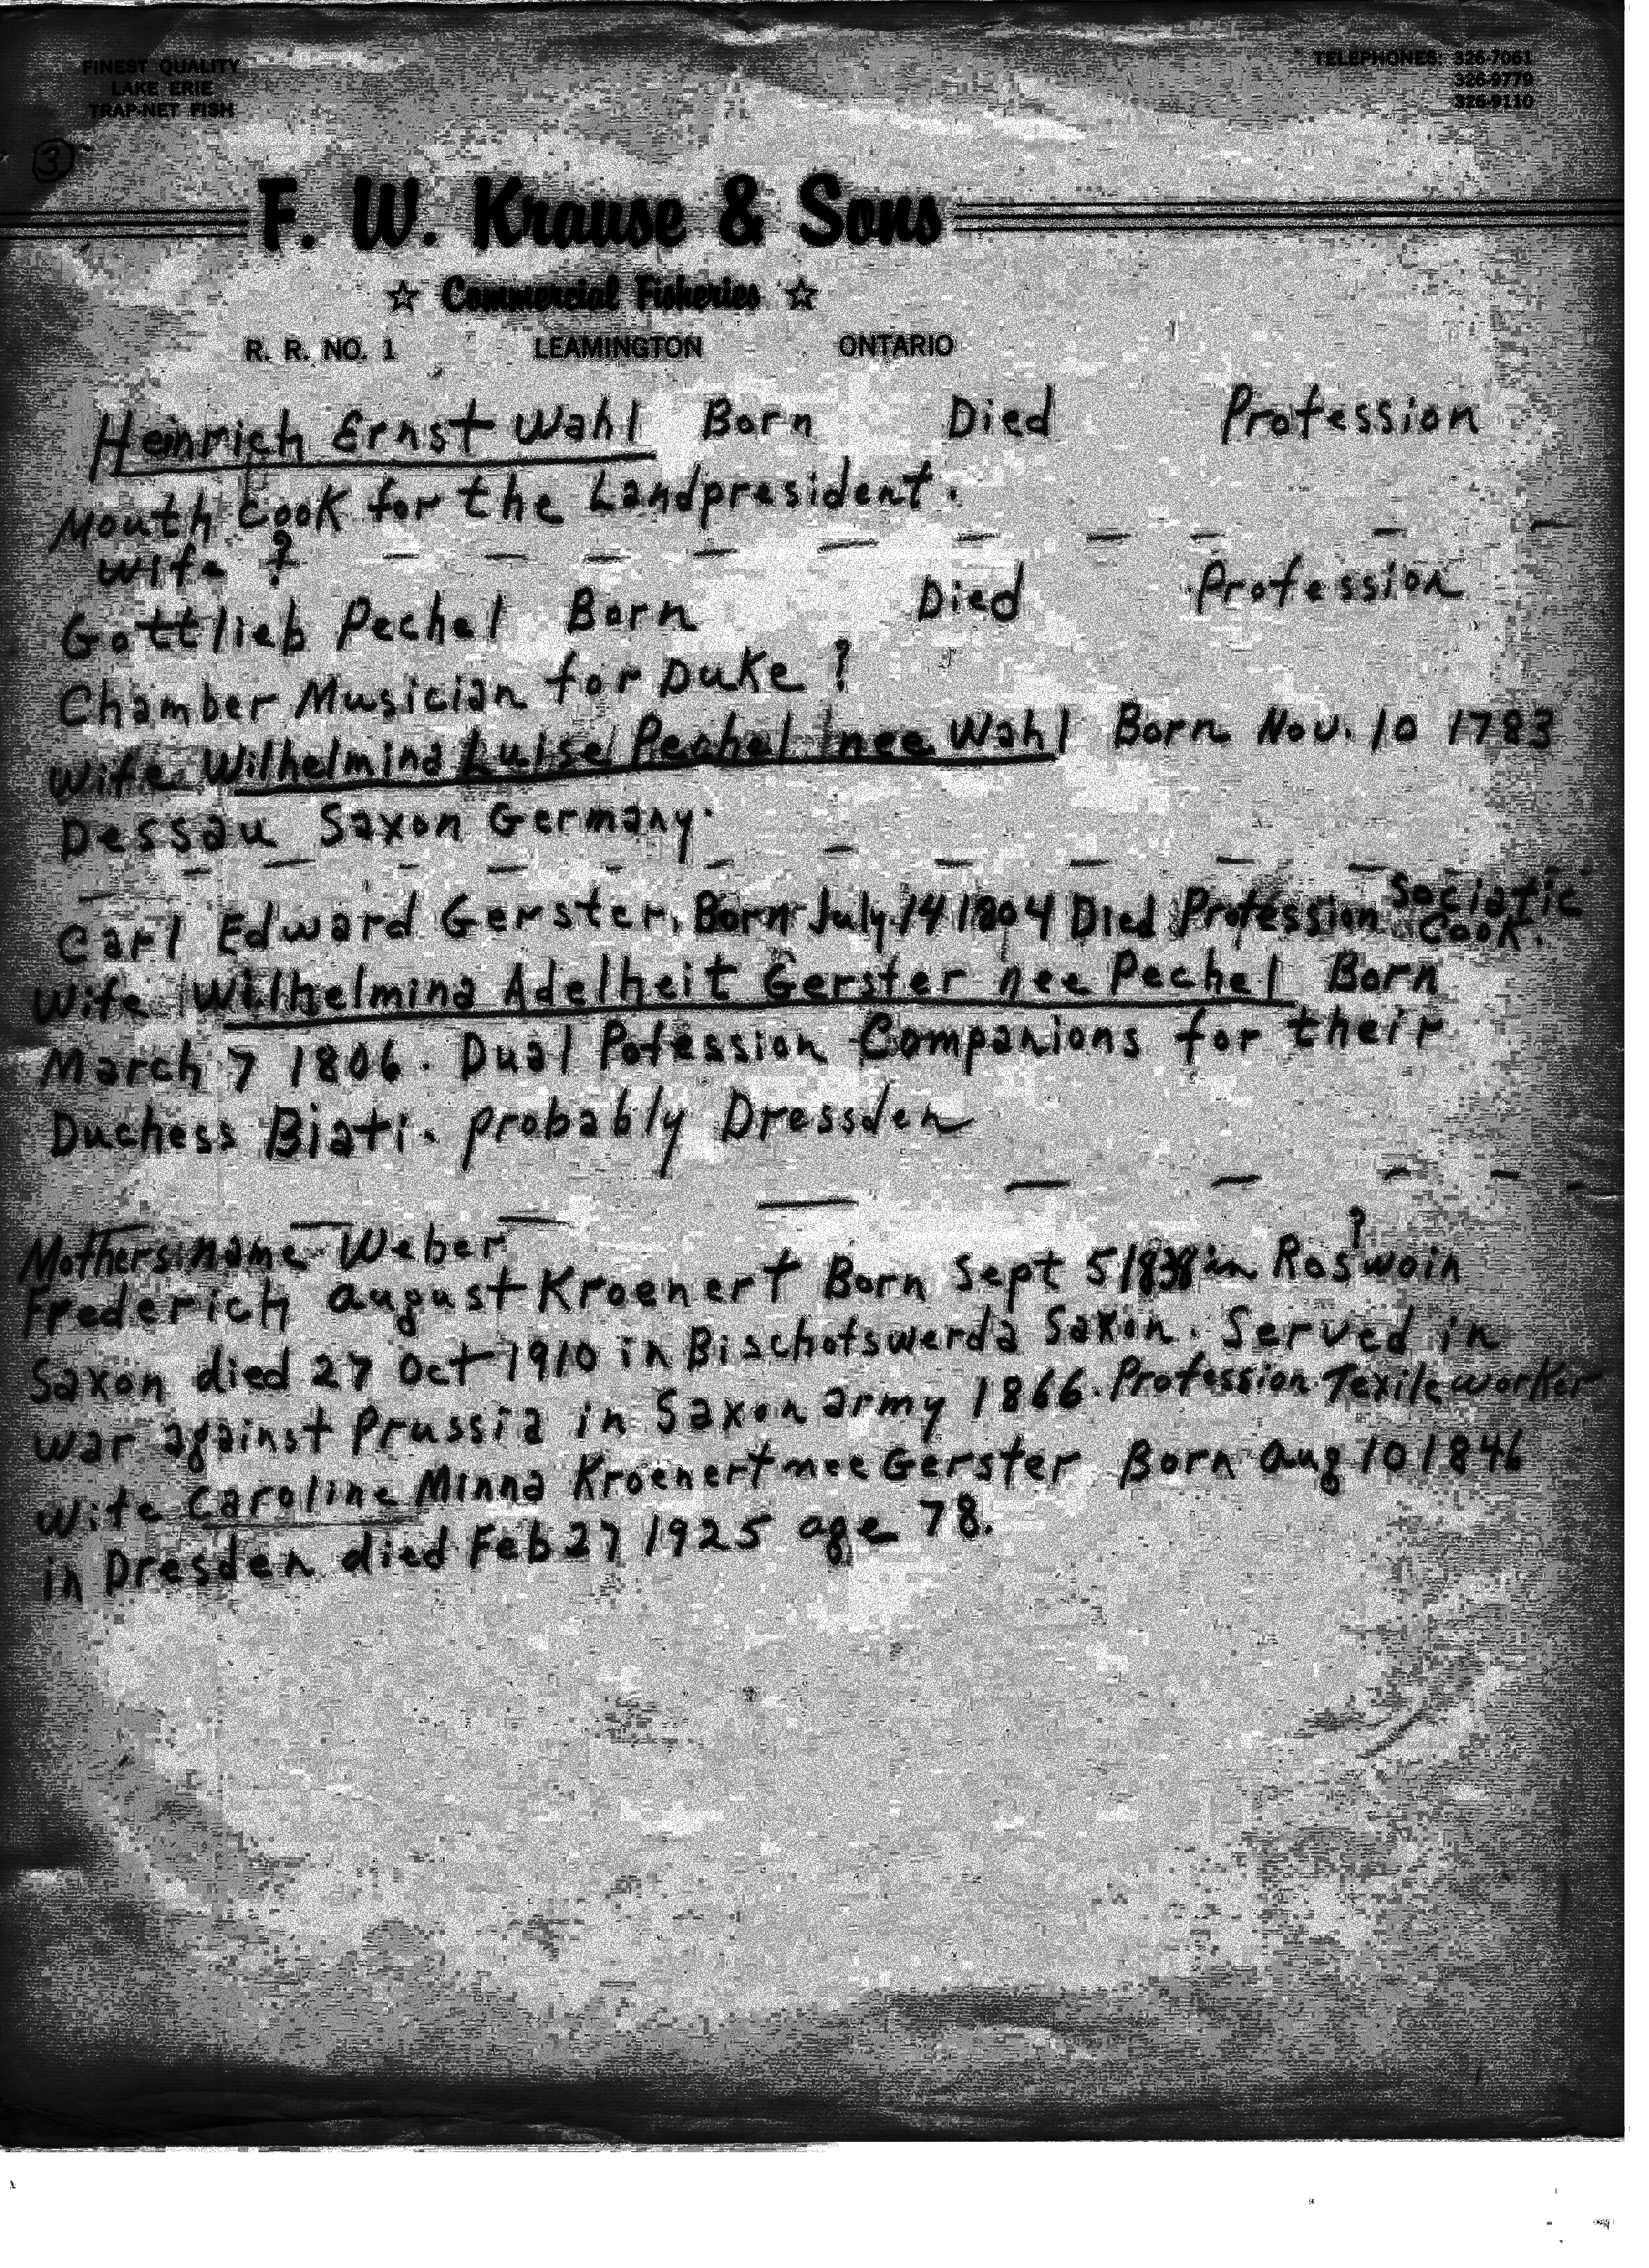 FINEST QUALITY
LAKE ERIE
TRAP-NET FISH
TELEPHONES: 326-7061
326-9779
326-9110
3
F. W. Krause & Sons
☆ Commercial Fisheries ☆
R. R. NO. 1 LEAMINGTON ONTARIO
Heinrich Ernst Wahl Born Died Profession
Mouth Cook for the Landpresident.
Wife ?
Gottlieb Pechel Born Died Profession
Chamber Musician for Duke ?
Wife Wilhelmina Luise Pechel nee Wahl Born Nov. 10 1783
Dessau Saxon Germany.
Carl Edward Gerster, Born July 14 1804 Died Profession Sociatic Cook.
Wife Wilhelmina Adelheit Gerster nee Pechel Born
March 7 1806. Dual Potession Companions for their
Duchess Biati. probably Dressden
Mothers name Weber
Frederich august Kroenert Born Sept 5 1838 in Roswoin ?
Saxon died 27 Oct 1910 in Bischofswerda Saxon. Served in
War against Prussia in Saxon army 1866. Profession Texile worker
Wife Caroline Minna Kroenert nee Gerster Born aug 10 1846
in Dresden died Feb 27 1925 age 78.